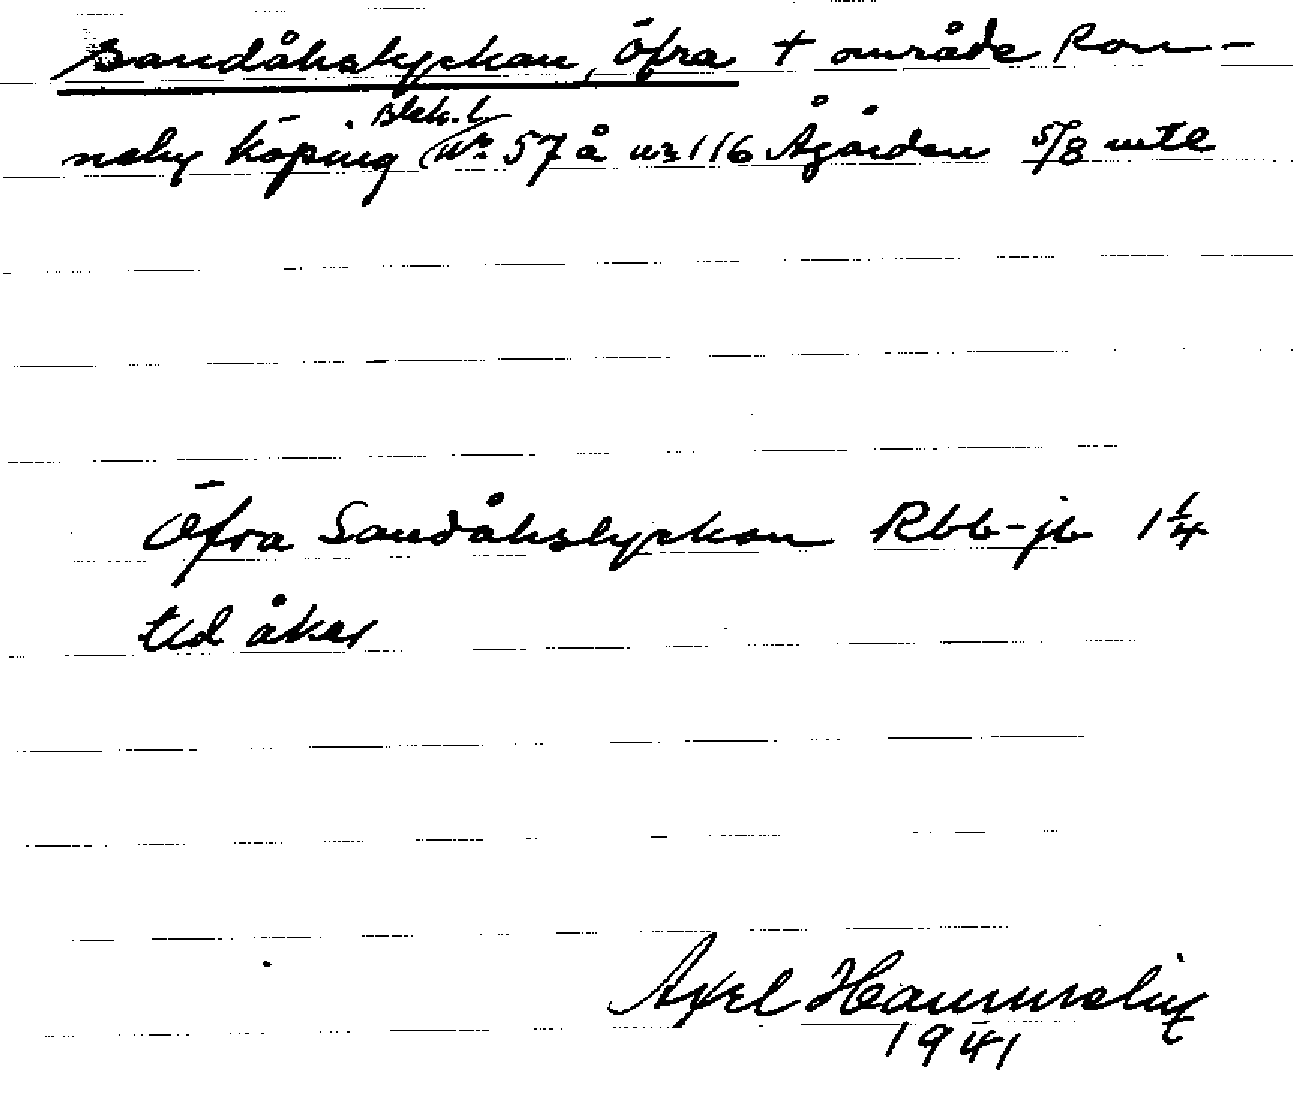 Sandåkslyckan, Öfra + område Ron-
neby köping Blek. l. nr 57 å nr 116 Ågården 5/8 mtl
Öfra Sandåkslyckan Rbb-jb 1 1/4
tld åker
Axel Hammelin
1941